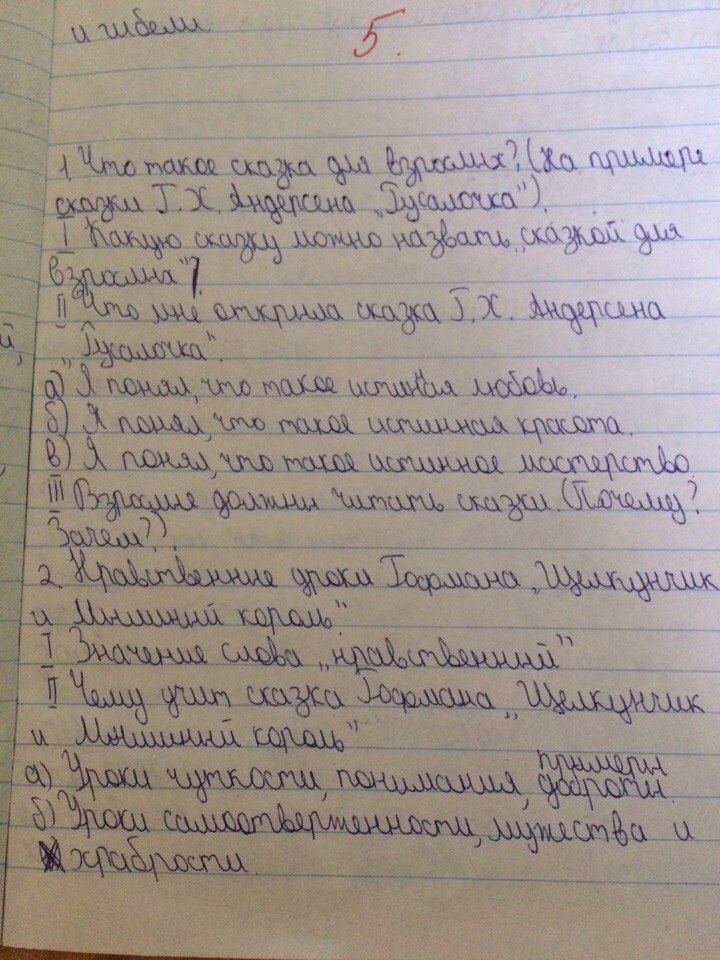 и гибели.
5.
1 Что такое сказка для взрослых? (На примере
сказки Г. Х. Андерсена „Русалочка").
I Какую сказку можно назвать „сказкой для
взрослых"?
II Что мне открыла сказка Г. Х. Андерсена
й,
„Русалочка".
а) Я понял, что такое истиная любовь.
б) Я понял, что такое истинная красота.
в) Я понял, что такое истинное мастерство
III Взрослые должны читать сказки. (Почему?
Зачем?).
2 Нравственные уроки Гофмана „Щелкунчик
и Мышиный король".
I Значение слова „нравственный"
II Чему учит сказка Гофмана „Щелкунчик
и Мышиный король"
примеры
а) Уроки чуткости, понимания, доброты.
б) Уроки самоотверженности, мужества и
храбрости.